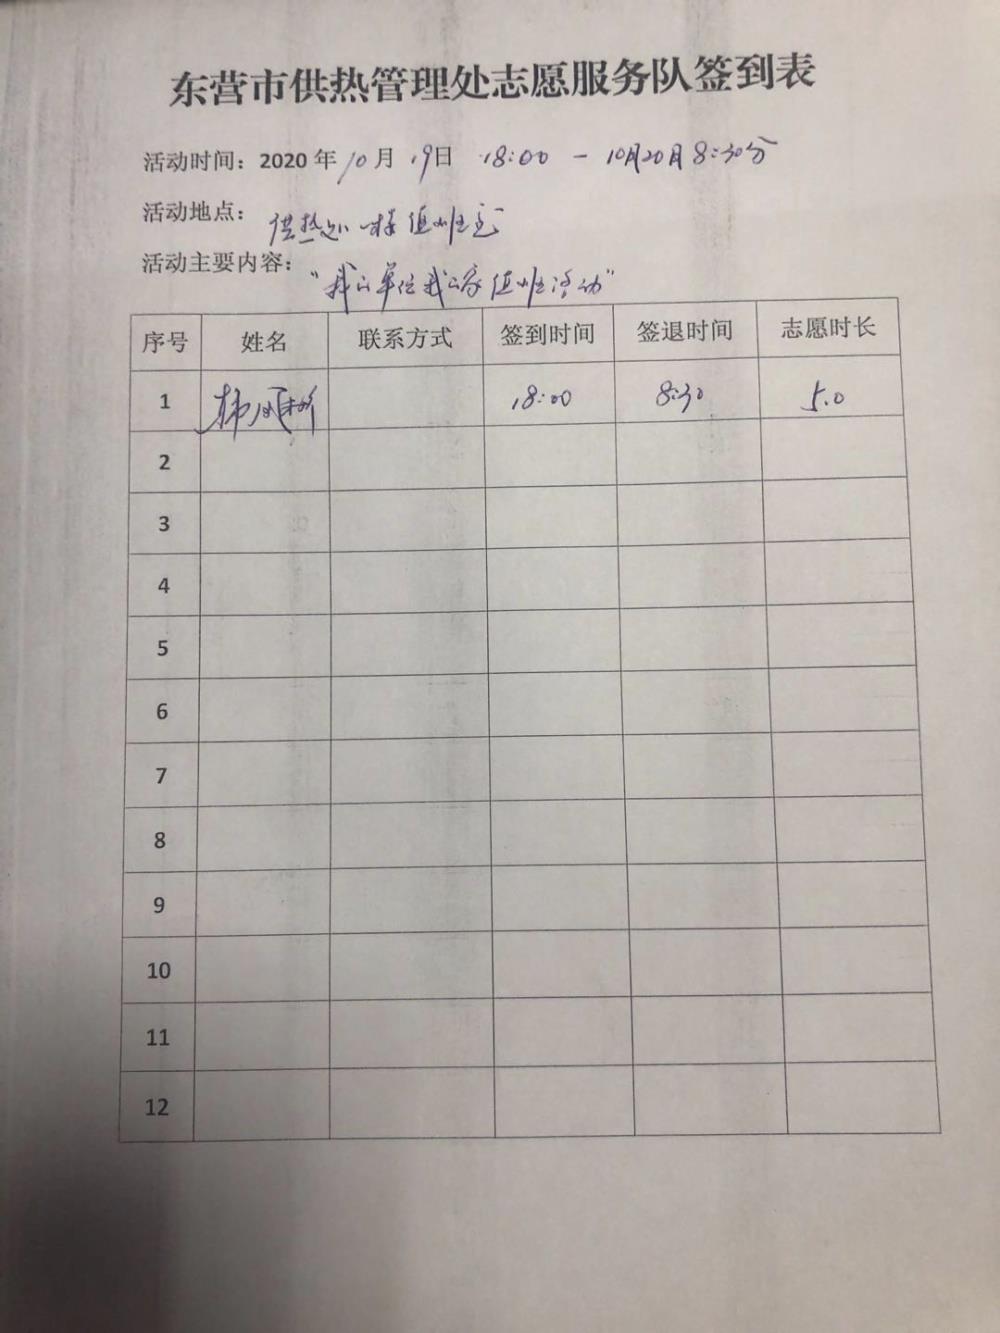 东营市供热管理处志愿服务队签到表
活动时间：2020 年 10 月 19日 18:00 - 10月20日 8:30分
活动地点： 供热处一楼值班室
活动主要内容： “我的单位我的家值班活动”
序号 姓名 联系方式 签到时间 签退时间 志愿时长
1 18:00 8:30 5.0
2
3
4
5
6
7
8
9
10
11
12